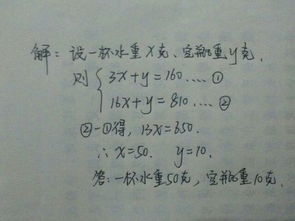 解：设一杯水重x克、空瓶重y克.
则 { 3x+y=160 .... ①
16x+y=810 .... ②
②-①得，13x=650.
∴ x=50. y=10.
答：一杯水重50克，空瓶重10克.